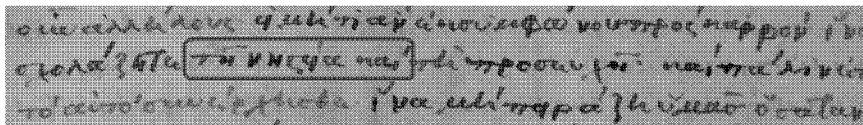 ἀλλήλους εἰ μήτι ἂν ἐκ συμφώνου πρὸς καιρὸν ἵνα
σχολάζητε τῇ νηστεία καὶ τῇ προσευχῇ καὶ πάλιν ἐπὶ
τὸ αὐτὸ συνέρχησθε ἵνα μὴ πειράζη ὑμᾶς ὁ σαταν